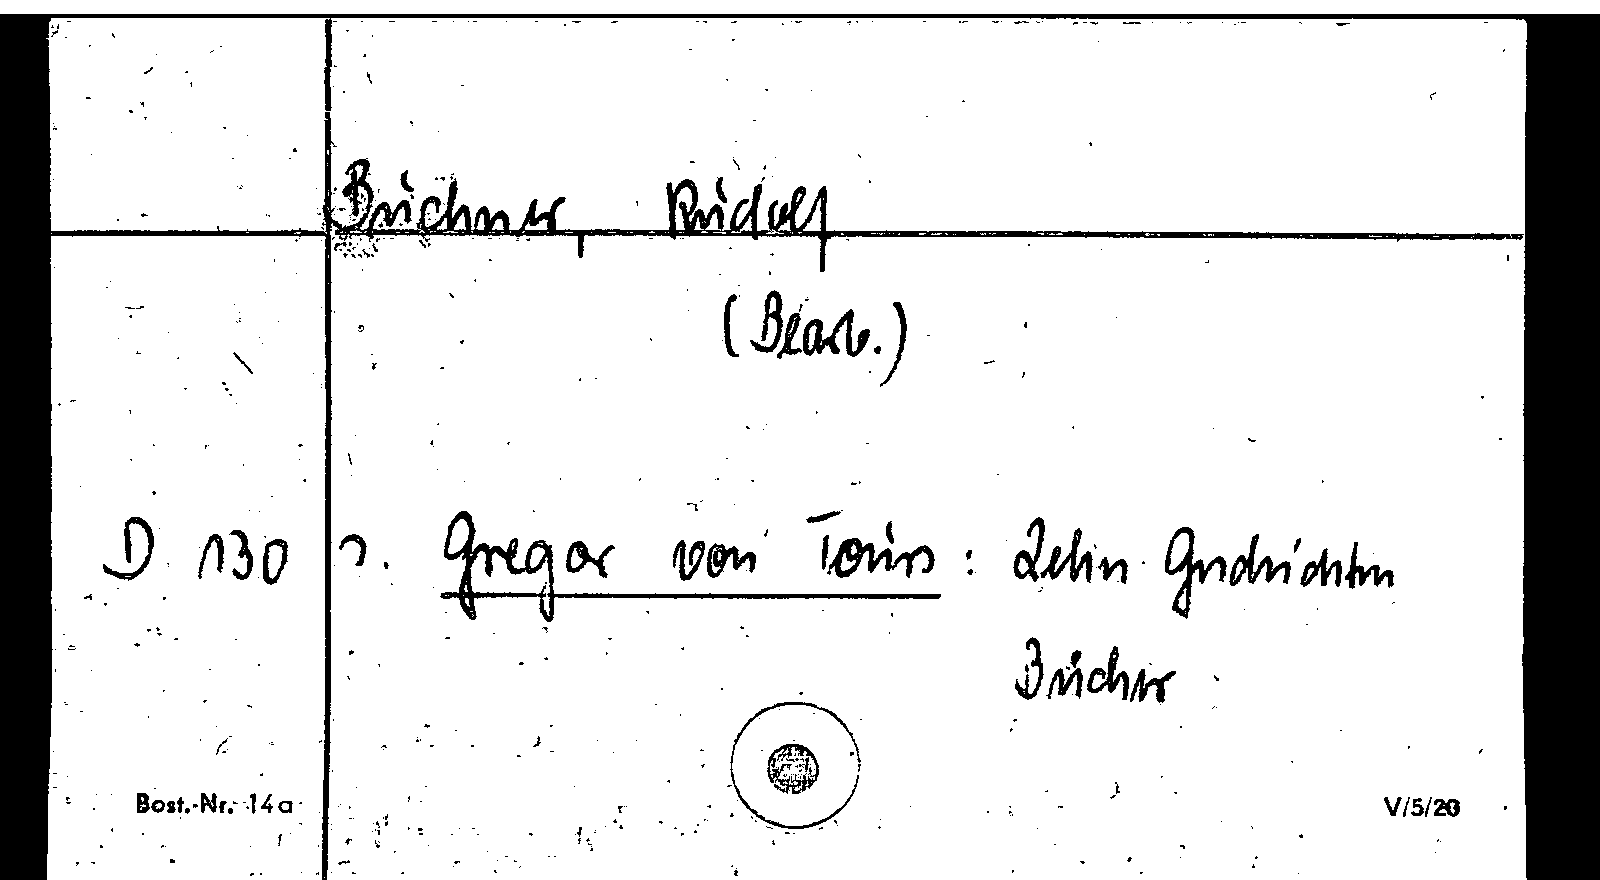 Buchner, Rudolf
(Bearb.)
D 130 s. Gregor von Tours: Zehn Geschichten
Bücher
Best.-Nr. 14a V/5/20